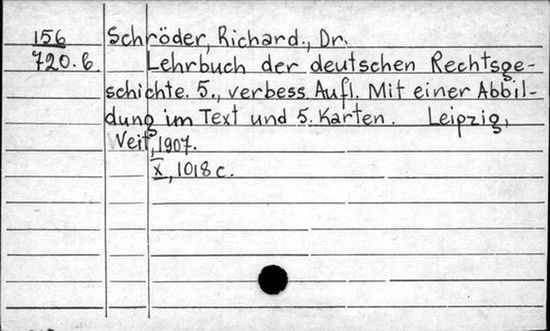 156 Schröder, Richard., Dr.
720.6. Lehrbuch der deutschen Rechtsge-
schichte. 5., verbess Aufl. Mit einer Abbil-
dung im Text und 5. Karten. Leipzig,
Veit, 1907.
X, 1018 c.